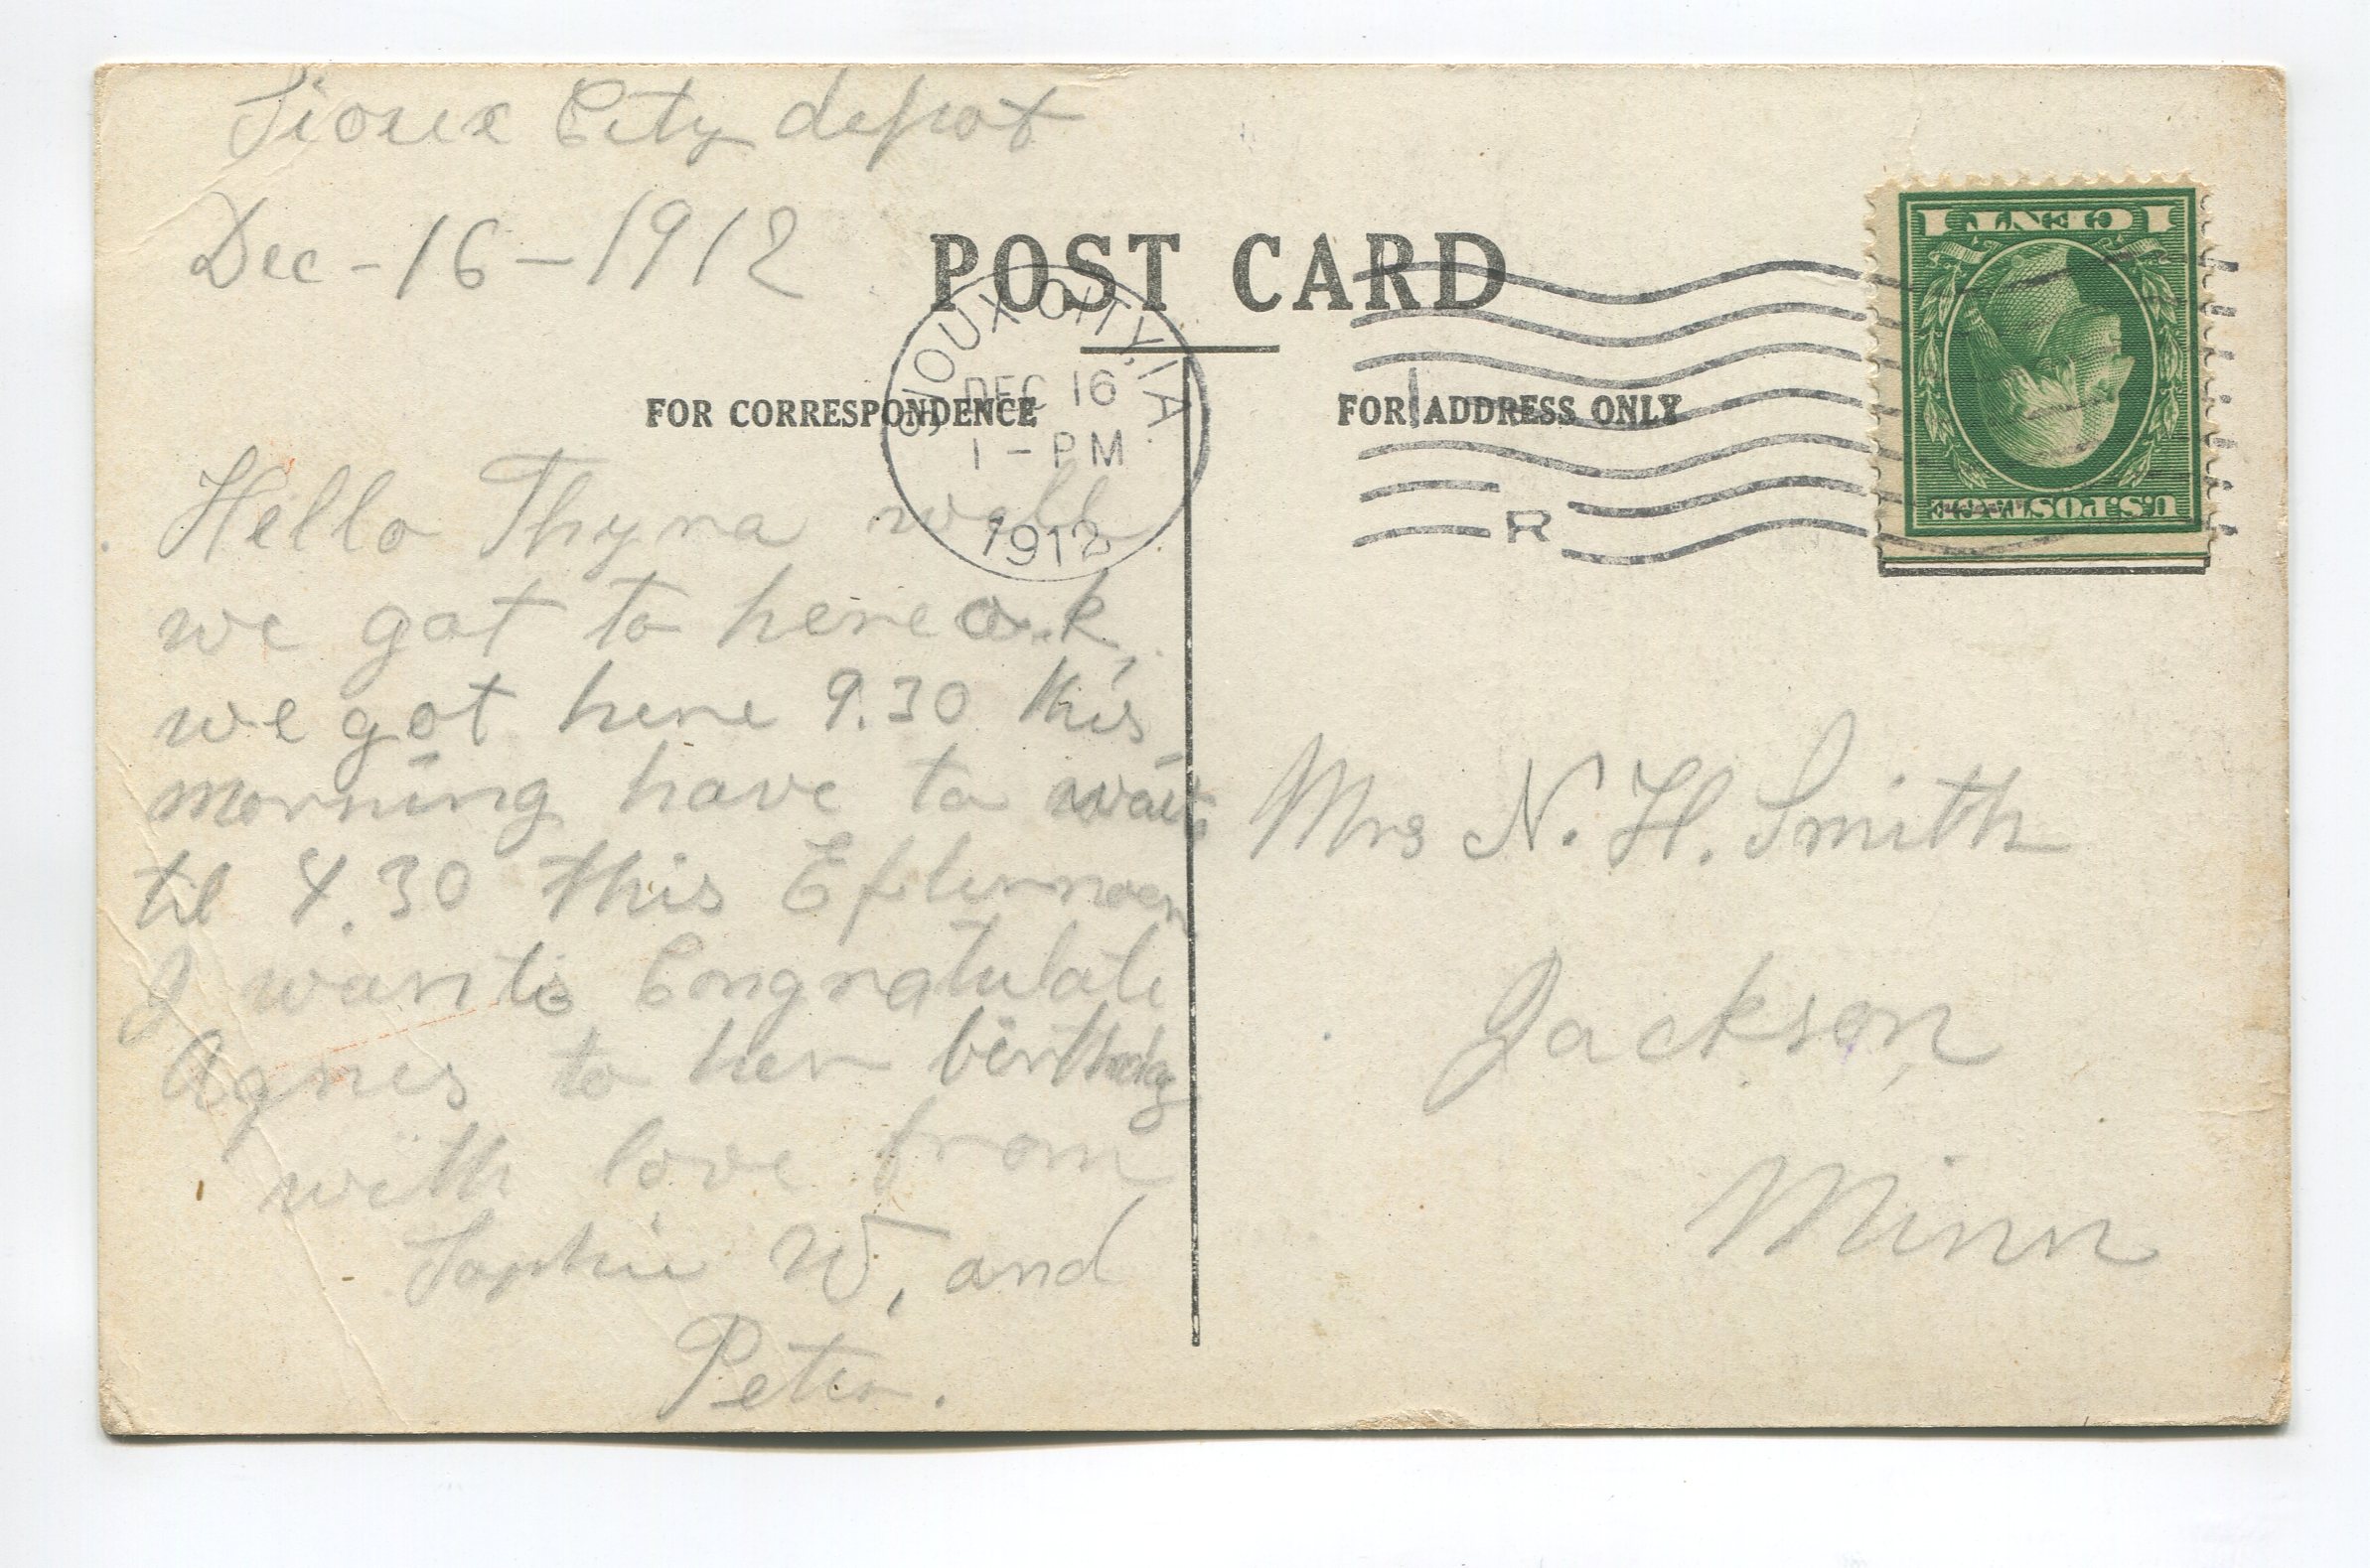 Sioux City depot
Dec - 16 - 1912
POST CARD
SIOUX CITY, IA.
DEC 16
1 - PM
1912
FOR CORRESPONDENCE
FOR ADDRESS ONLY
R
1 CENT 1
U.S. POSTAGE
Hello Thyra well
we got to here o.k,
we got here 9.30 this
morning have to wait
til 4.30 this Efternoon
I want to Congratulate
Agnes to her birthday
with love from
Sophie W, and
Peter.
Mrs N. H. Smith
Jackson
Minn